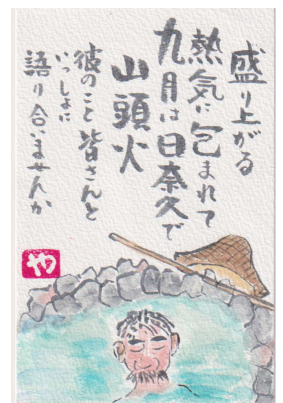 盛り上がる
熱気に包まれて
九月は日奈久で
山頭火
彼のこと皆さんと
いっしょに
語り合いませんか
や